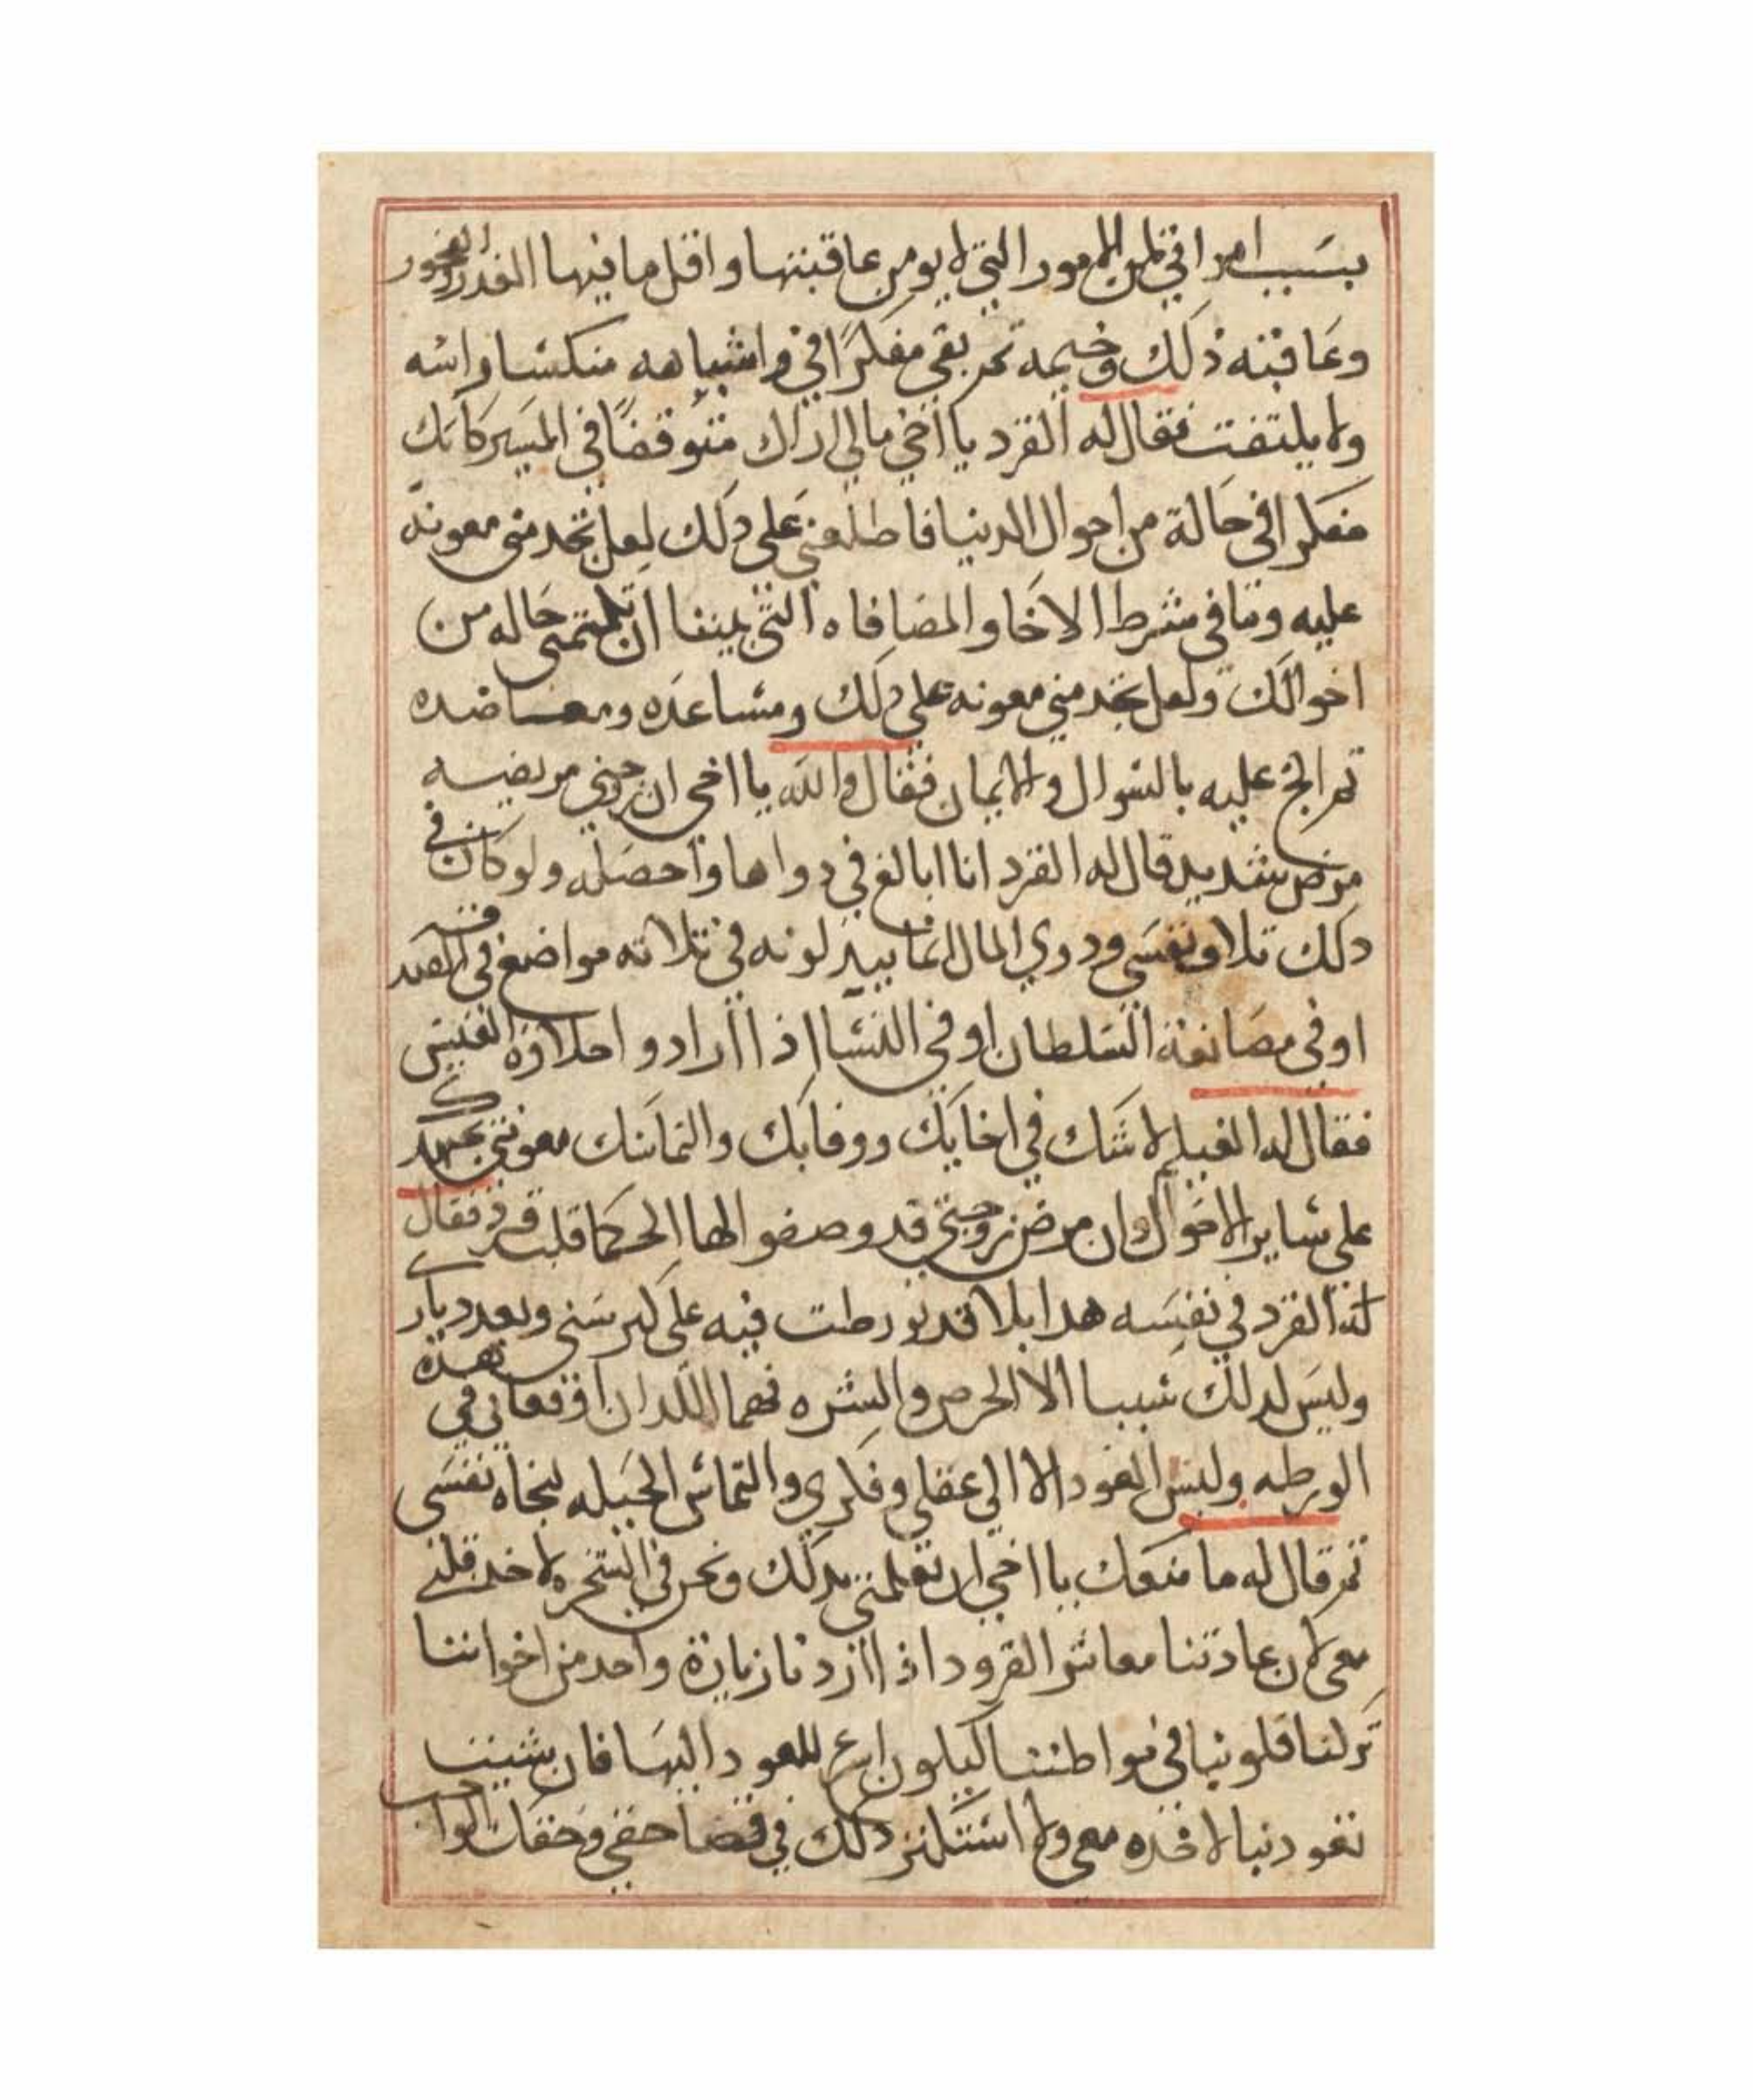 بسَبب امراتي لمن الامور التي لا يومن عاقبتها واقل ما فيها الغدر والفجور
وعَاقبته ذلك وخيمه ثم بقي مفكرًا في واشباهه منكسًا راسه
ولا يلتفت فقال له القرد يا اخي مالي اراك متوقفًا في المسير كانك
مفكر افي حَالة من احوال الدنيا فاطلعني عَلى ذلك لعل تجد مني معونه
عليه وما في شرط الاخَا والمضافاه التي بيننا ان تكتمني حَاله من
احوالك ولعل تجد مني معونه على ذلك ومسَاعدَه ومعاضده
ثم الح عليه بالسوال والايمان فقال والله يا اخي ان زوجتي مريضه
مرض شديد قال له القرد انا ابالغ في دواها واحصله ولو كان في
ذلك تلاف نفسَي وذوي المال انما يبدلونه في ثلاثه مواضع في الصَدقه
او في مصَانعة السَلطان او في النسَا اذا ارادوا حلاوة العيش
فقال له الغيلم لا شَك في اخايَك ووفايَك والتماسَك معونتي بجهدك
على سَاير الاحوال وان مرض زوجتي قد وصفوا لها الحكما قلب قرد فقال
له القرد في نفسَه هدا بلا قد تورطت فيه على كبر سَني وبعد دياري
وليسَ لدلك سَببا الا الحرص والشره فهما اللدان اوقعاني في هذه
الورطه وليسَ العود الا الى عقلي وفكري والتماسَ الحيله لنجاة نفسَي
ثم قال له ما منعَك يا اخي ان تعلمني بدلك ونحن في الشجره لاخد قلبي
معي لان عادتنا معاشر القرود اذا اردنا زيارة واحد من اخواننا
تركنا قلوبنا في مواطننا ليكون اسرع للعود اليهَا فان شيت
نعود بنا لاخده معي ولا استكثر ذلك في قضا حقي وحقك الواجب